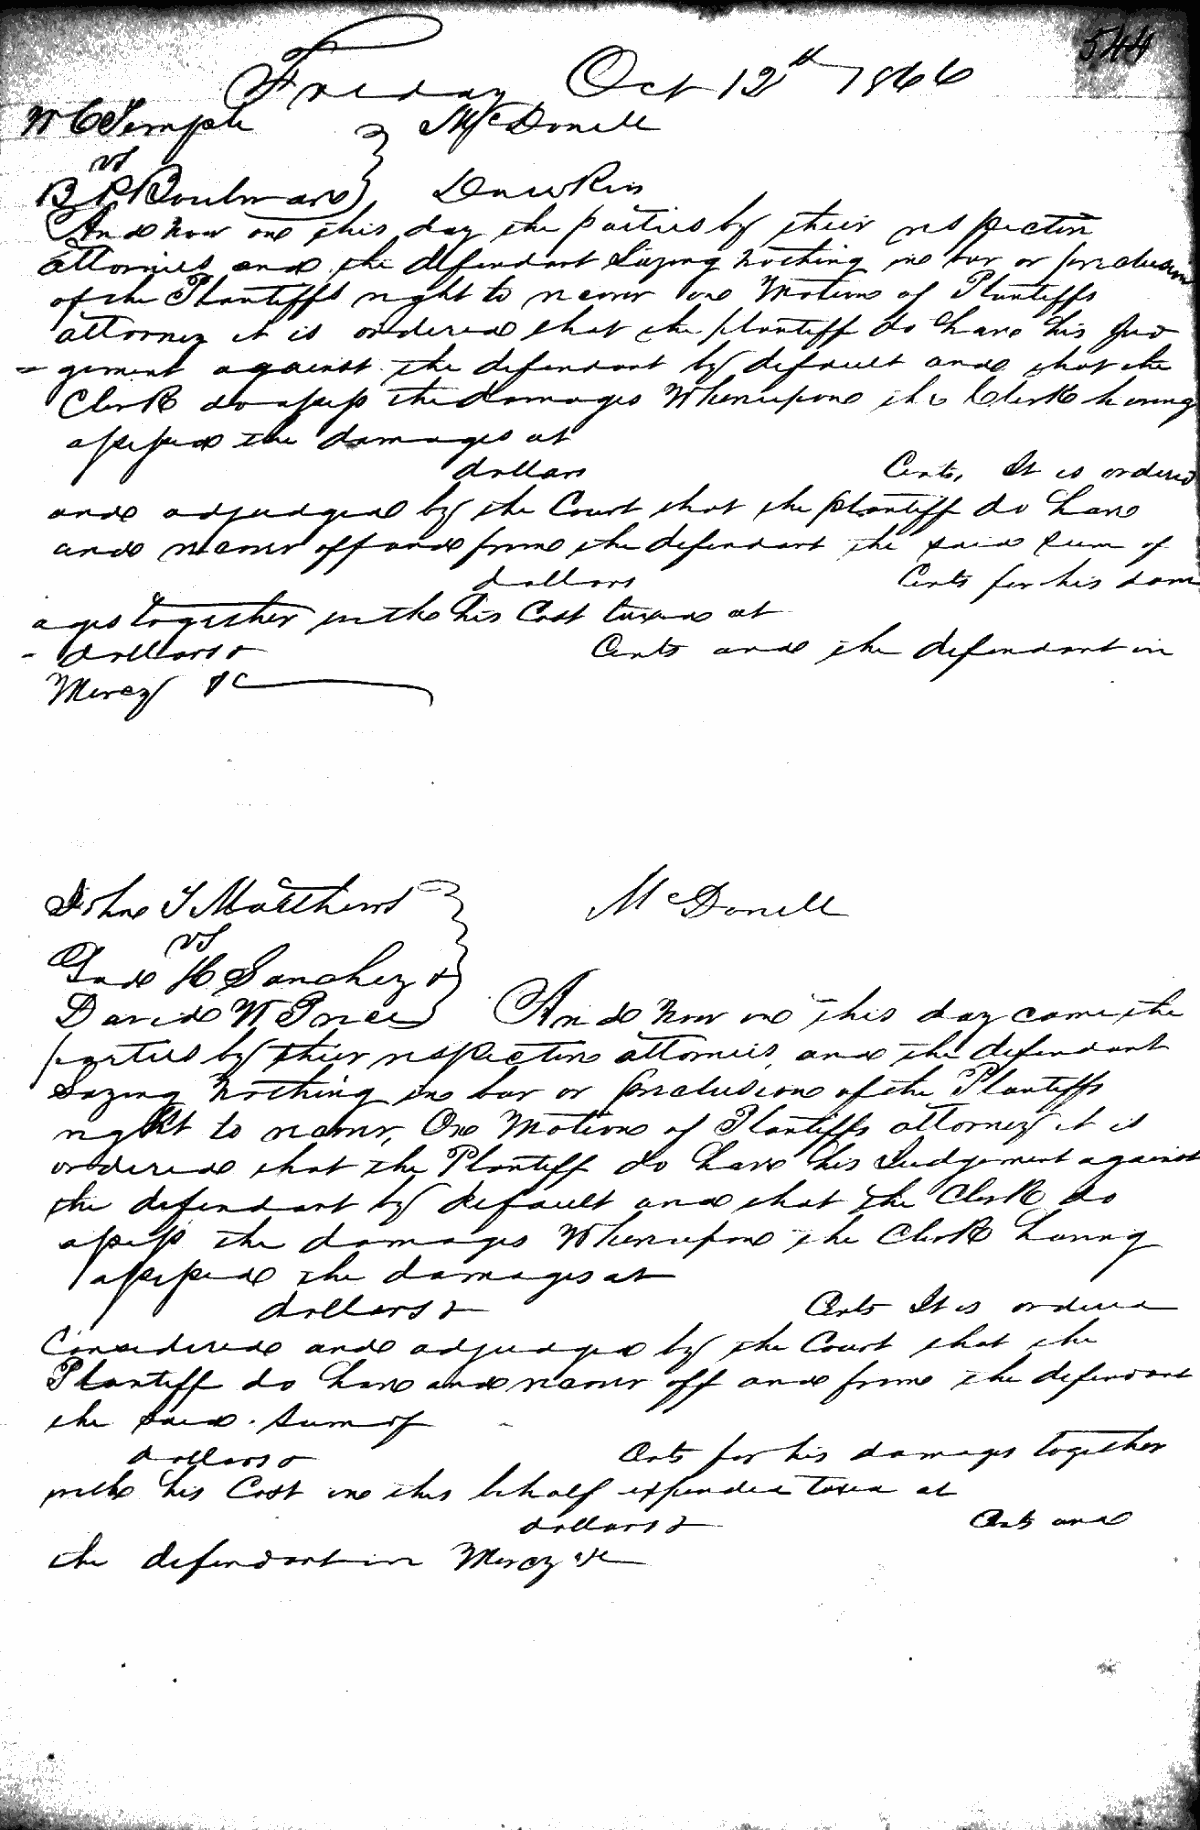 544
Friday Oct 12th 1866
W C Temple } McDonell
vs
B P Boulware } Dawkins
And now on this day the parties by their respective
attornies and the defendant Saying nothing in bar or preclusion
of the Plantiffs right to recover on Motion of Plantiffs
attorney it is ordered that the plantiff do have his Jud
= gement against the defendant by default and that the
Clerk do assess the damages Whereupon the Clerk having
assessed the damages at
dollars Cents, It is ordered
and adjudged by the Court that the plantiff do have
and recover off and from the defendant the said Sum of
dollars Cents for his dam
ages together with his Cost taxed at
- dollars & Cents and the defendant in
Mercy &c
John T Matthews } McDonell
vs
H Sanchez &
David W Price } And now on this day came the
parties by their respective attornies, and the defendant
Saying Nothing in bar or preclusion of the Plantiffs
right to recover, On Motion of Plantiffs attorney it is
ordered that the Plantiff do have his Judgement against
the defendant by default and that the Clerk do
assess the damages Whereupon the Clerk having
assessed the damages at
dollars & Cents It is ordered
Considered and adjudged by the Court that the
Plantiff do have and recover off and from the defendant
the said Sum of
dollars & Cents for his damages together
with his Cost in this behalf expended taxed at
dollars & Cents and
the defendant in Mercy &c